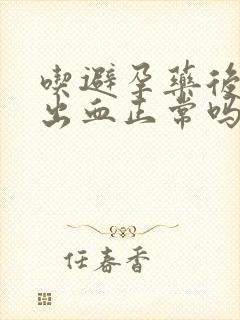 喫避孕藥後
出血正常嗎
任春香